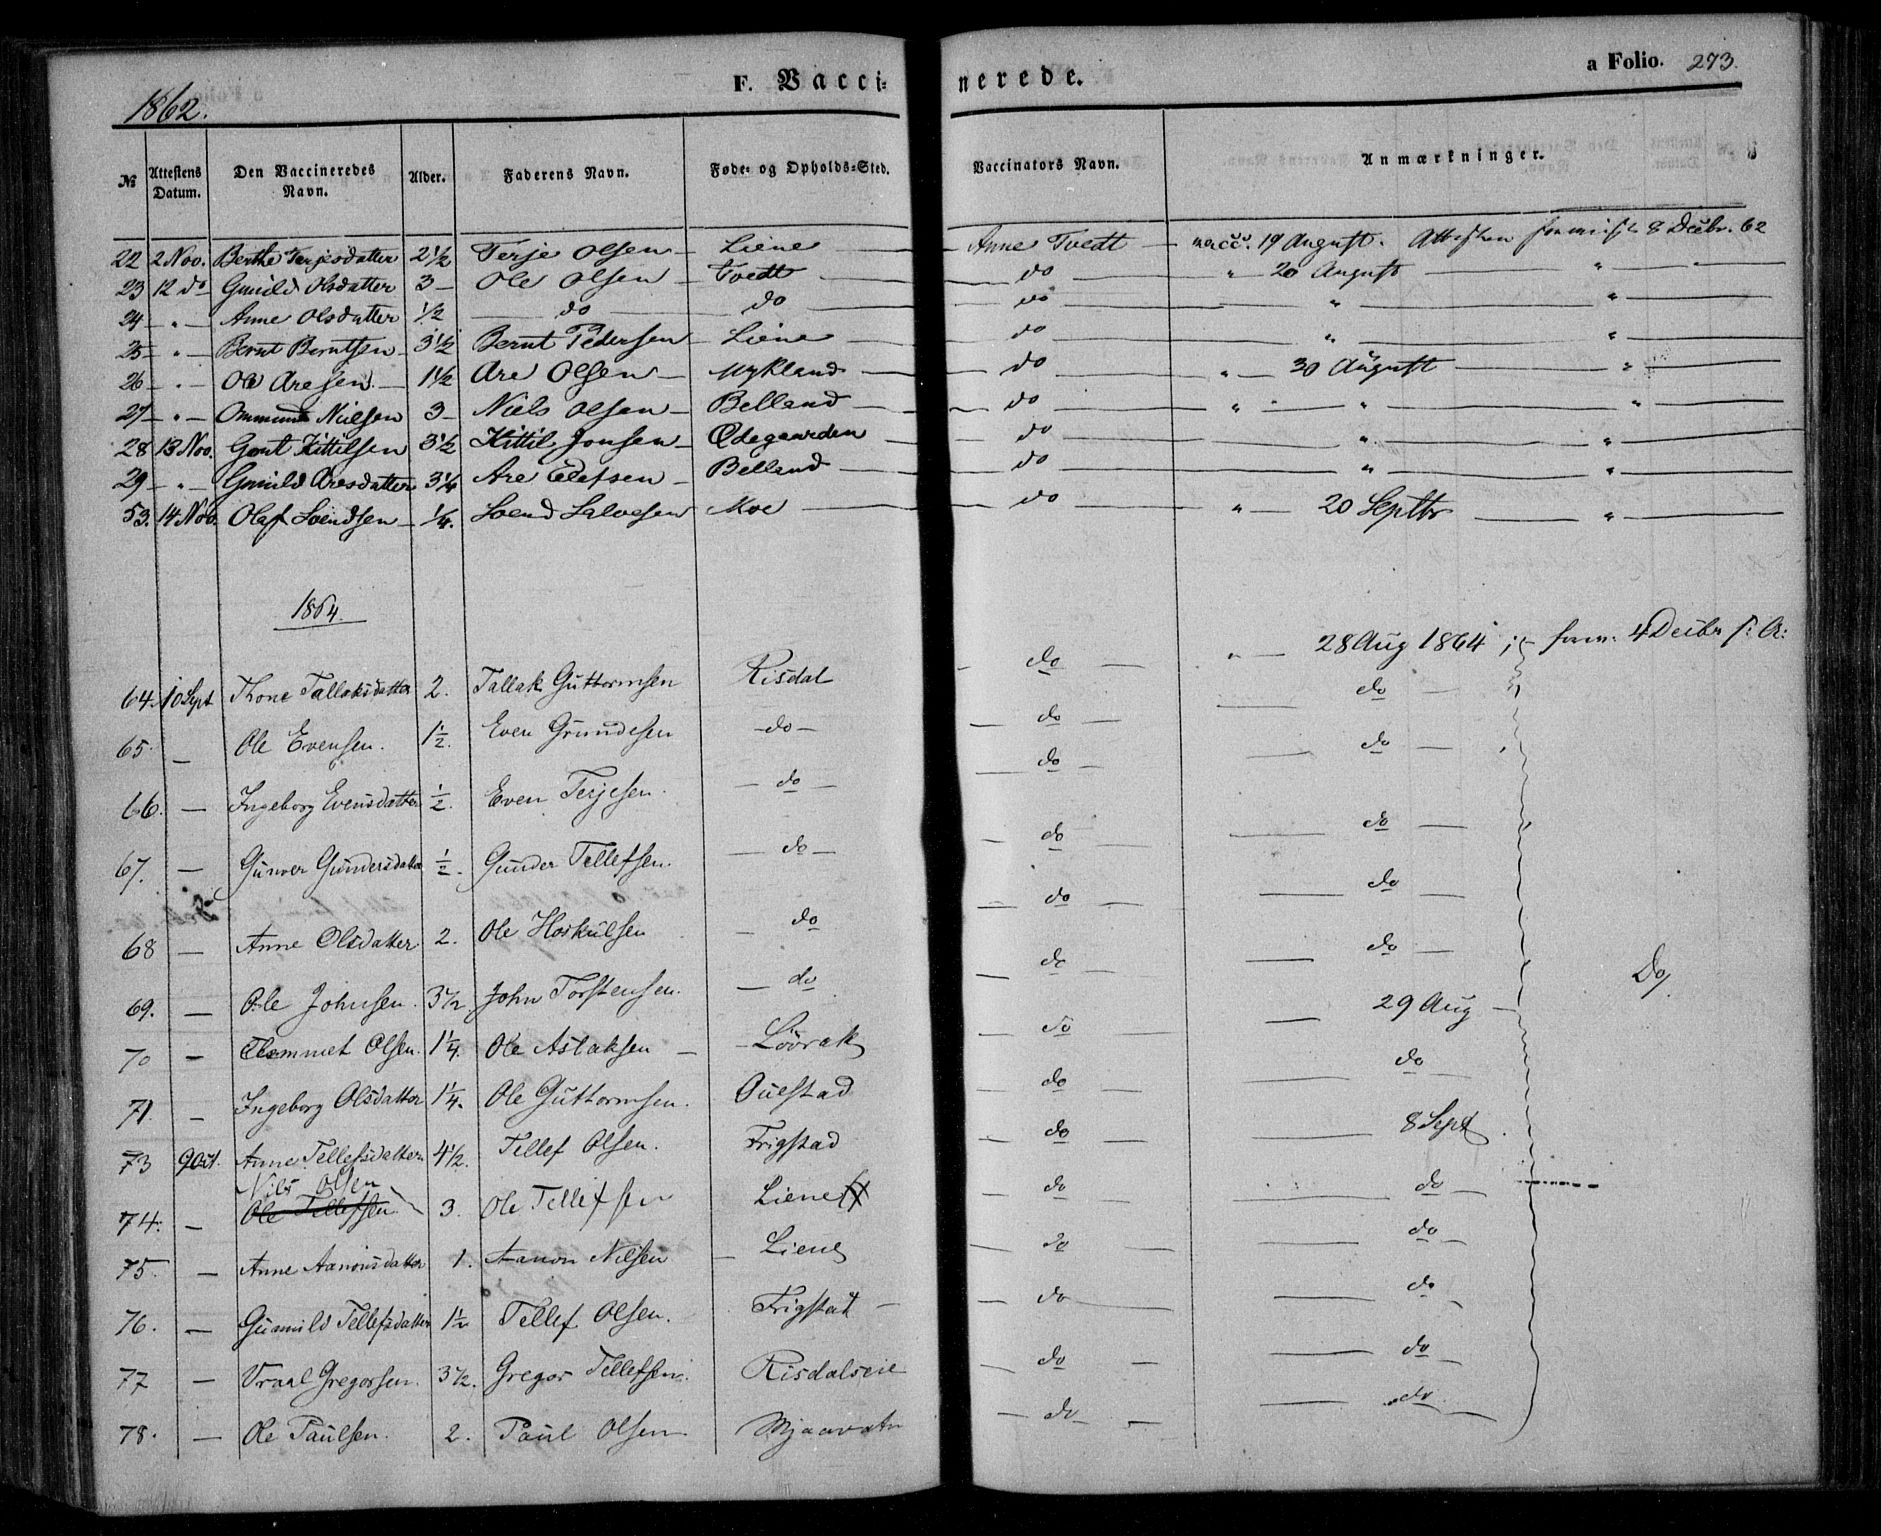 F. Vaccinerede. a Folio. 273.
1862.
№ Attestens Datum. Den Vaccineredes Navn. Alder. Faderens Navn. Føde- og Opholds-Sted. Vaccinators Navn. Anmærkninger.
22 2 Nov. Berthe Terjesdatter 2 1/2 Terje Olsen Liene Anne Tvedt vacc. 19 August. Attesten 8 Decbr. 62
23 12 do Gunild Olsdatter 3 Ole Olsen Tvedt do " 20 August " "
24 " Anne Olsdatter 1/2 do do do " "
25 " Bernt Berntsen 3 1/2 Bernt Pedersen Liene do " "
26 " Ole Aresen 1 1/2 Are Olsen Mykland do " 30 August "
27 " Ommund Nielsen 3 Niels Olsen Belland do " " "
28 13 Nov. Gunt Kittilsen 3 1/2 Kittil Jonsen Ødegaarden do " "
29 " Gunild Aresdatter 3 1/4 Are Olefsen Belland do " "
53. 14 Nov. Olaf Svendsen 1/4. Svend Salvesen Moe do " 20 Septbr "
1864.
64. 10 Sept Thone Tallaksdatter 2. Tallak Guttormsen Risdal do " 28 Aug 1864 ; 4 Decbr s: A:
65. Ole Evensen. 1 1/2. Even Grundesen do do do
66. Ingeborg Evensdatter 1/2. Even Terjesen. do do do
67. Gunver Gundersdatter 1/2. Gunder Tellefsen. do do do
68 Anne Olsdatter 2. Ole Hoskulsen do do do
69. Ole Johnsen. 3 1/2. John Torstensen. do do do Do.
70 Clemmet Olsen. 1 1/4. Ole Aslaksen Løvrak do 29 Aug
71. Ingeborg Olsdatter 1 1/4. Ole Guttormsen. Ouestad do do
73 9 Oct. Anne Tellefsdatter 4 1/2. Tellef Olsen. Frigstad do 8 Sept.
Nils Olsen
74. Ole Tellefsen 3. Ole Tellefsen Liene do do
75. Anne Aanonsdatter 1. Aanon Nilsen Liene do do
76. Gunnild Tellefsdatter 1 1/2 Tellef Olsen. Frigstad do do
77 Vraal Gregorsen. 3 1/2. Gregor Tellefsen. Risdalseie do do
78. Ole Paulsen. 2. Paul Olsen Mjaavatn do do